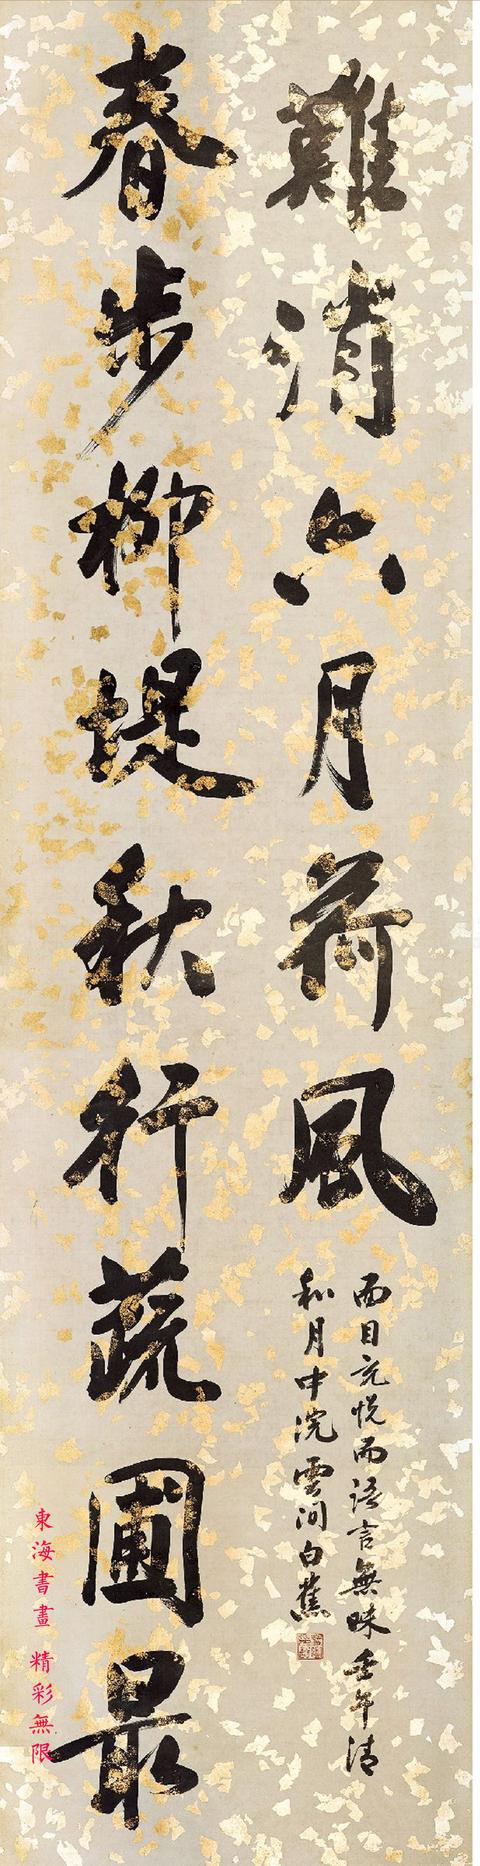 春步柳堤秋行蔬圃最
難消六月荷風
面目悅而語言無味壬午清
和月中浣雲間白蕉
東海書畫 精彩無限